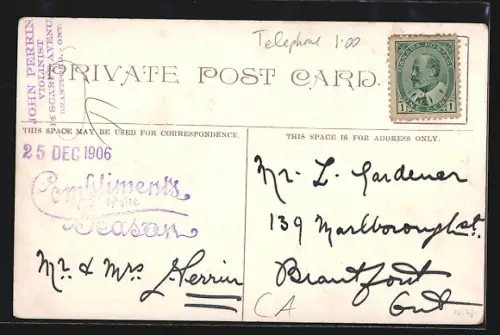 Telephone 1.00
JOHN PERRIN
VIOLINIST
BRANTFORD, ONT.
PRIVATE POST CARD.
CANADA POSTAGE
1 1
THIS SPACE MAY BE USED FOR CORRESPONDENCE.
THIS SPACE IS FOR ADDRESS ONLY.
25 DEC 1906
Compliments
of the
Season
Mr. & Mrs Perrin
Mr. L. Gardener
139 Marlborough st.
Brantford
Ont
CA